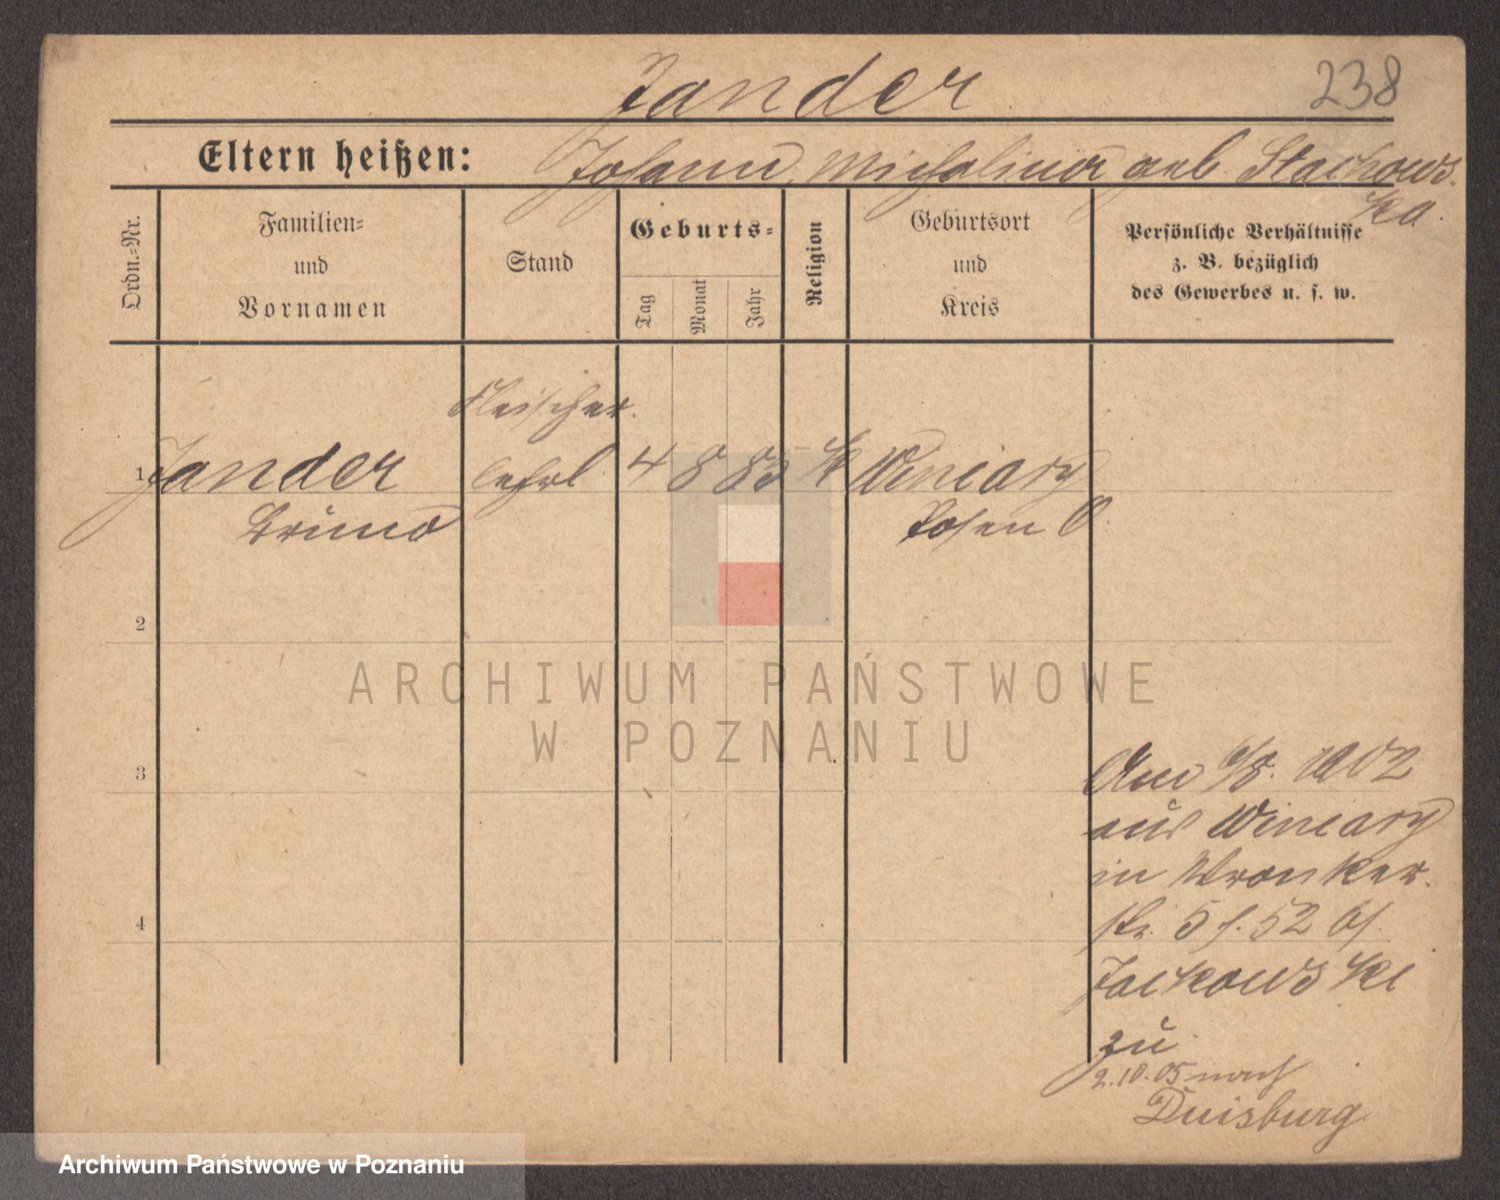 Jander
238
Eltern heißen:
Johann, Michalina geb. Stachows-
ka.
Ordn.-Nr.
Familien-
und
Vornamen
Stand
Geburts-
Tag
Monat
Jahr
Religion
Geburtsort
und
Kreis
Persönliche Verhältnisse
z. B. bezüglich
des Gewerbes u. s. w.
Fleischer
1 Jander lehrl. 4 8 85 k Winiary
Bruno Posen O.
2
3
4
Am 6/8. 1902
aus Winiary
in Wronker
str. 5 f. 52 bf
Jackowski
zu
2.10.05 nach
Duisburg
ARCHIWUM PAŃSTWOWE
W POZNANIU
Archiwum Państwowe w Poznaniu